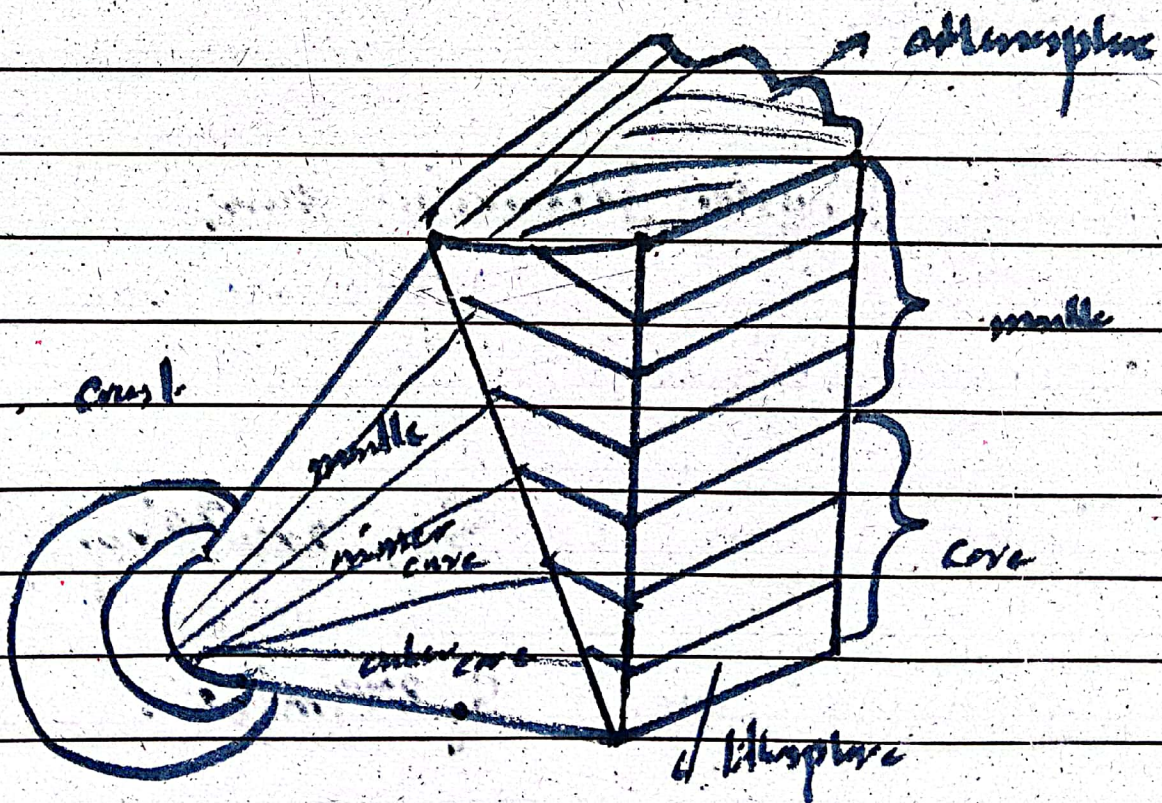 asthenosphere
mantle
crust
mantle
inner
core
core
outer core
lithosphere